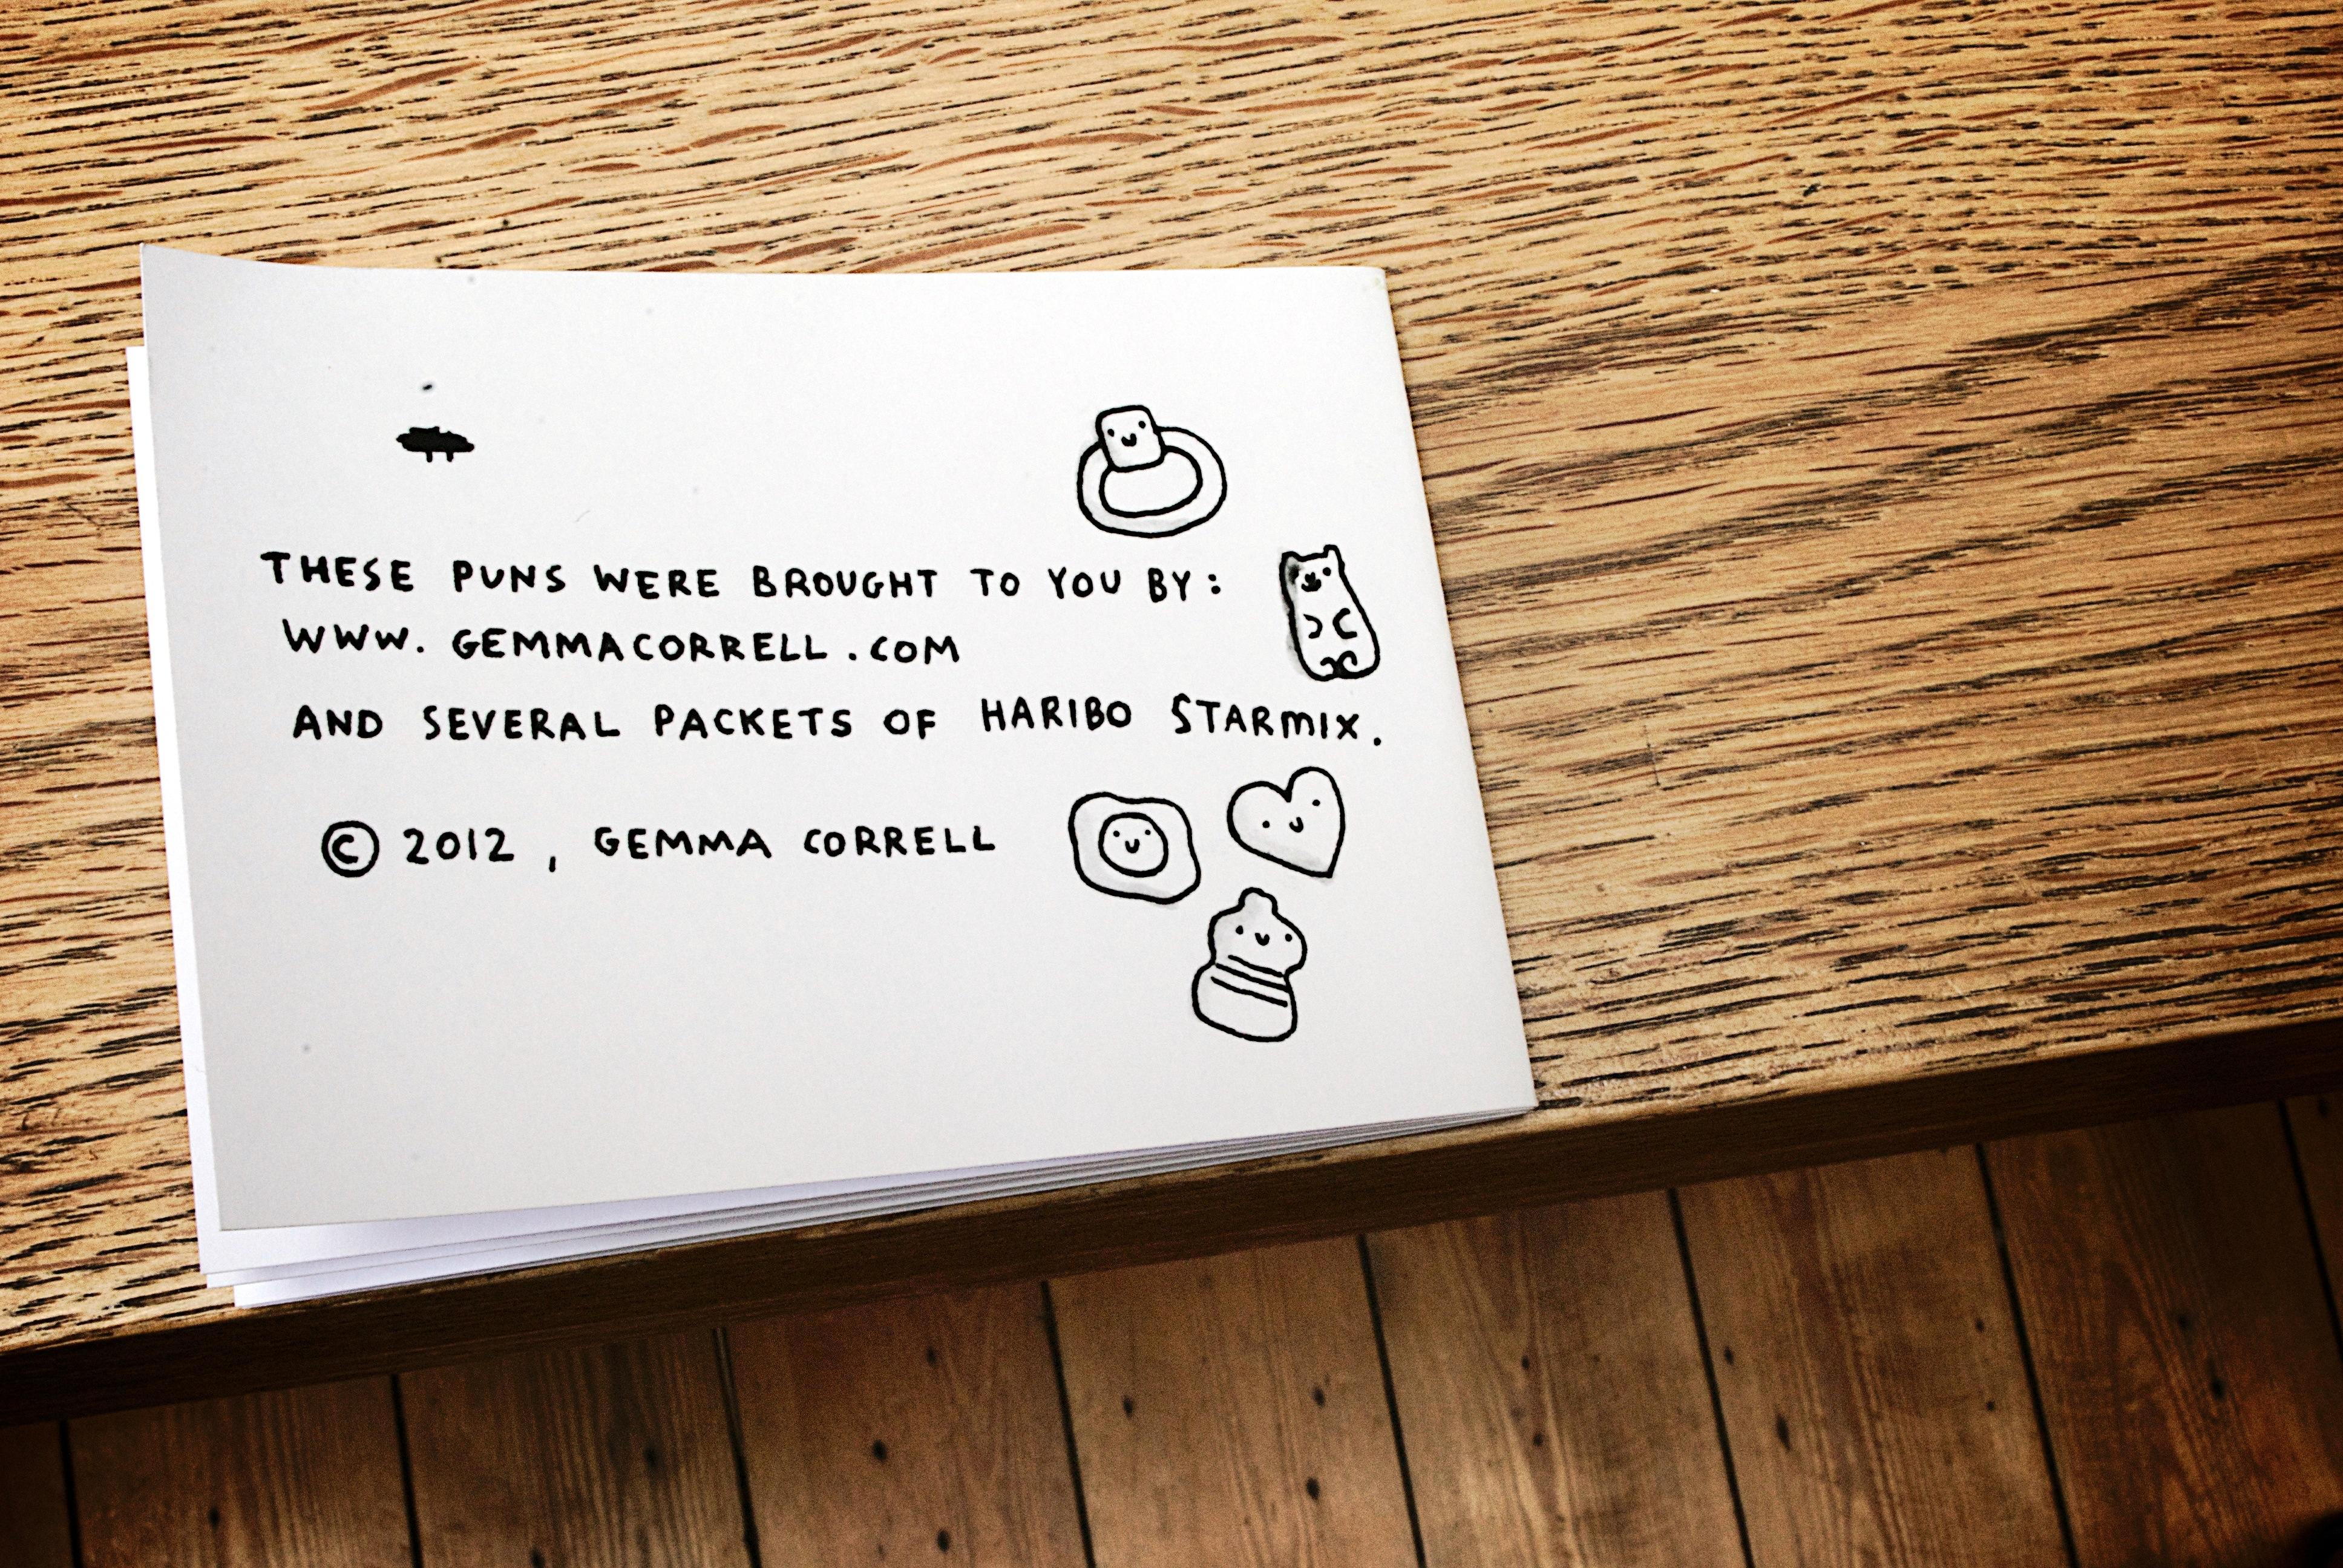 THESE PUNS WERE BROUGHT TO YOU BY:
WWW. GEMMACORRELL.COM
AND SEVERAL PACKETS OF HARIBO STARMIX.
© 2012, GEMMA CORRELL